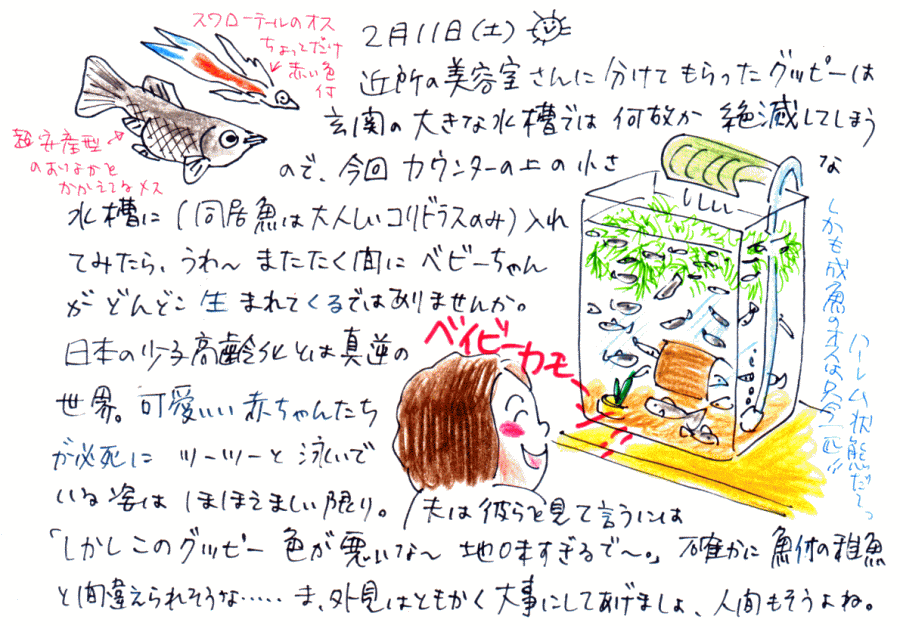 スワローテールのオス
ちょっとだけ
赤い色
付
超安産型
のおなかを
かかえてるメス
2月11日(土)
近所の美容室さんに分けてもらったグッピーは
玄関の大きな水槽では何故か絶滅してしまう
ので、今回カウンターの上の小さな
水槽に(同居魚は大人しいコリドラスのみ)入れ
てみたら、うわ〜またたく間にベビーちゃん
がどんどこ生まれてくるではありませんか。
日本の少子高齢化とは真逆の
世界。可愛いい赤ちゃんたち
が必死にツーツーと泳いで
いる姿はほほえましい限り。
夫は彼らを見て言うには
「しかしこのグッピー色が悪いな〜地味すぎるで〜。」確かに魚付の稚魚
と間違えられそうな……ま、外見はともかく大事にしてあげましょ、人間もそうよね。
ベイビーカモ〜ン
しかも成魚のオスは只今一匹!!
ハーレム状態だぞっ